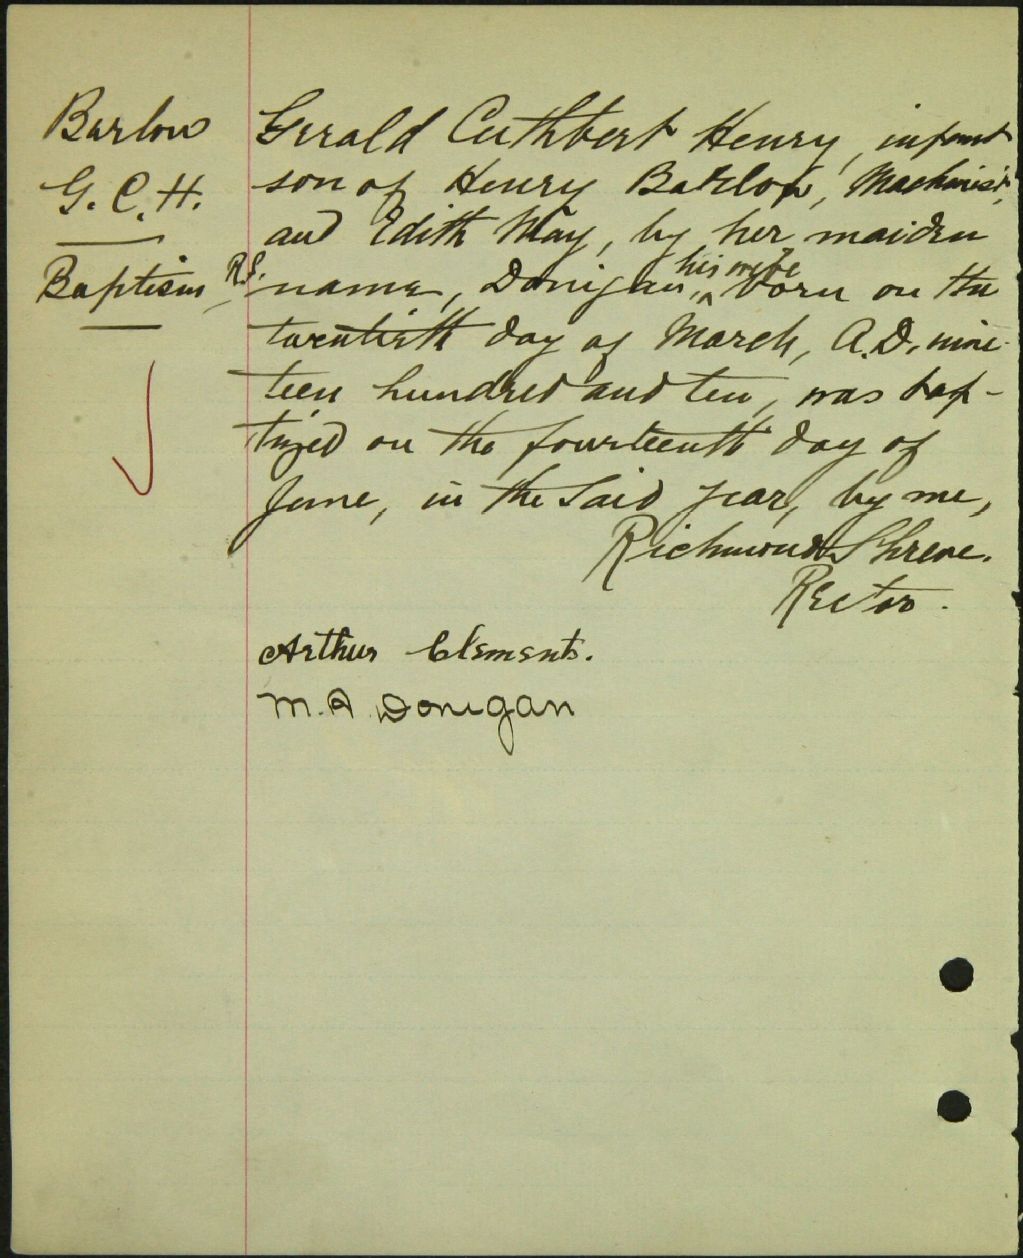 Barlow
G. C. H.
Baptism
R.S.
Gerald Cuthbert Henry, infant
son of Henry Barlow, Machinist,
and Edith May, by her maiden
name, Donigan, his wife born on the
twentieth day of March, A.D. nine-
teen hundred and ten, was bap-
tized on the fourteenth day of
June, in the said year, by me,
Richmond Shreve.
Rector.
Arthur Clements.
M. A. Donigan